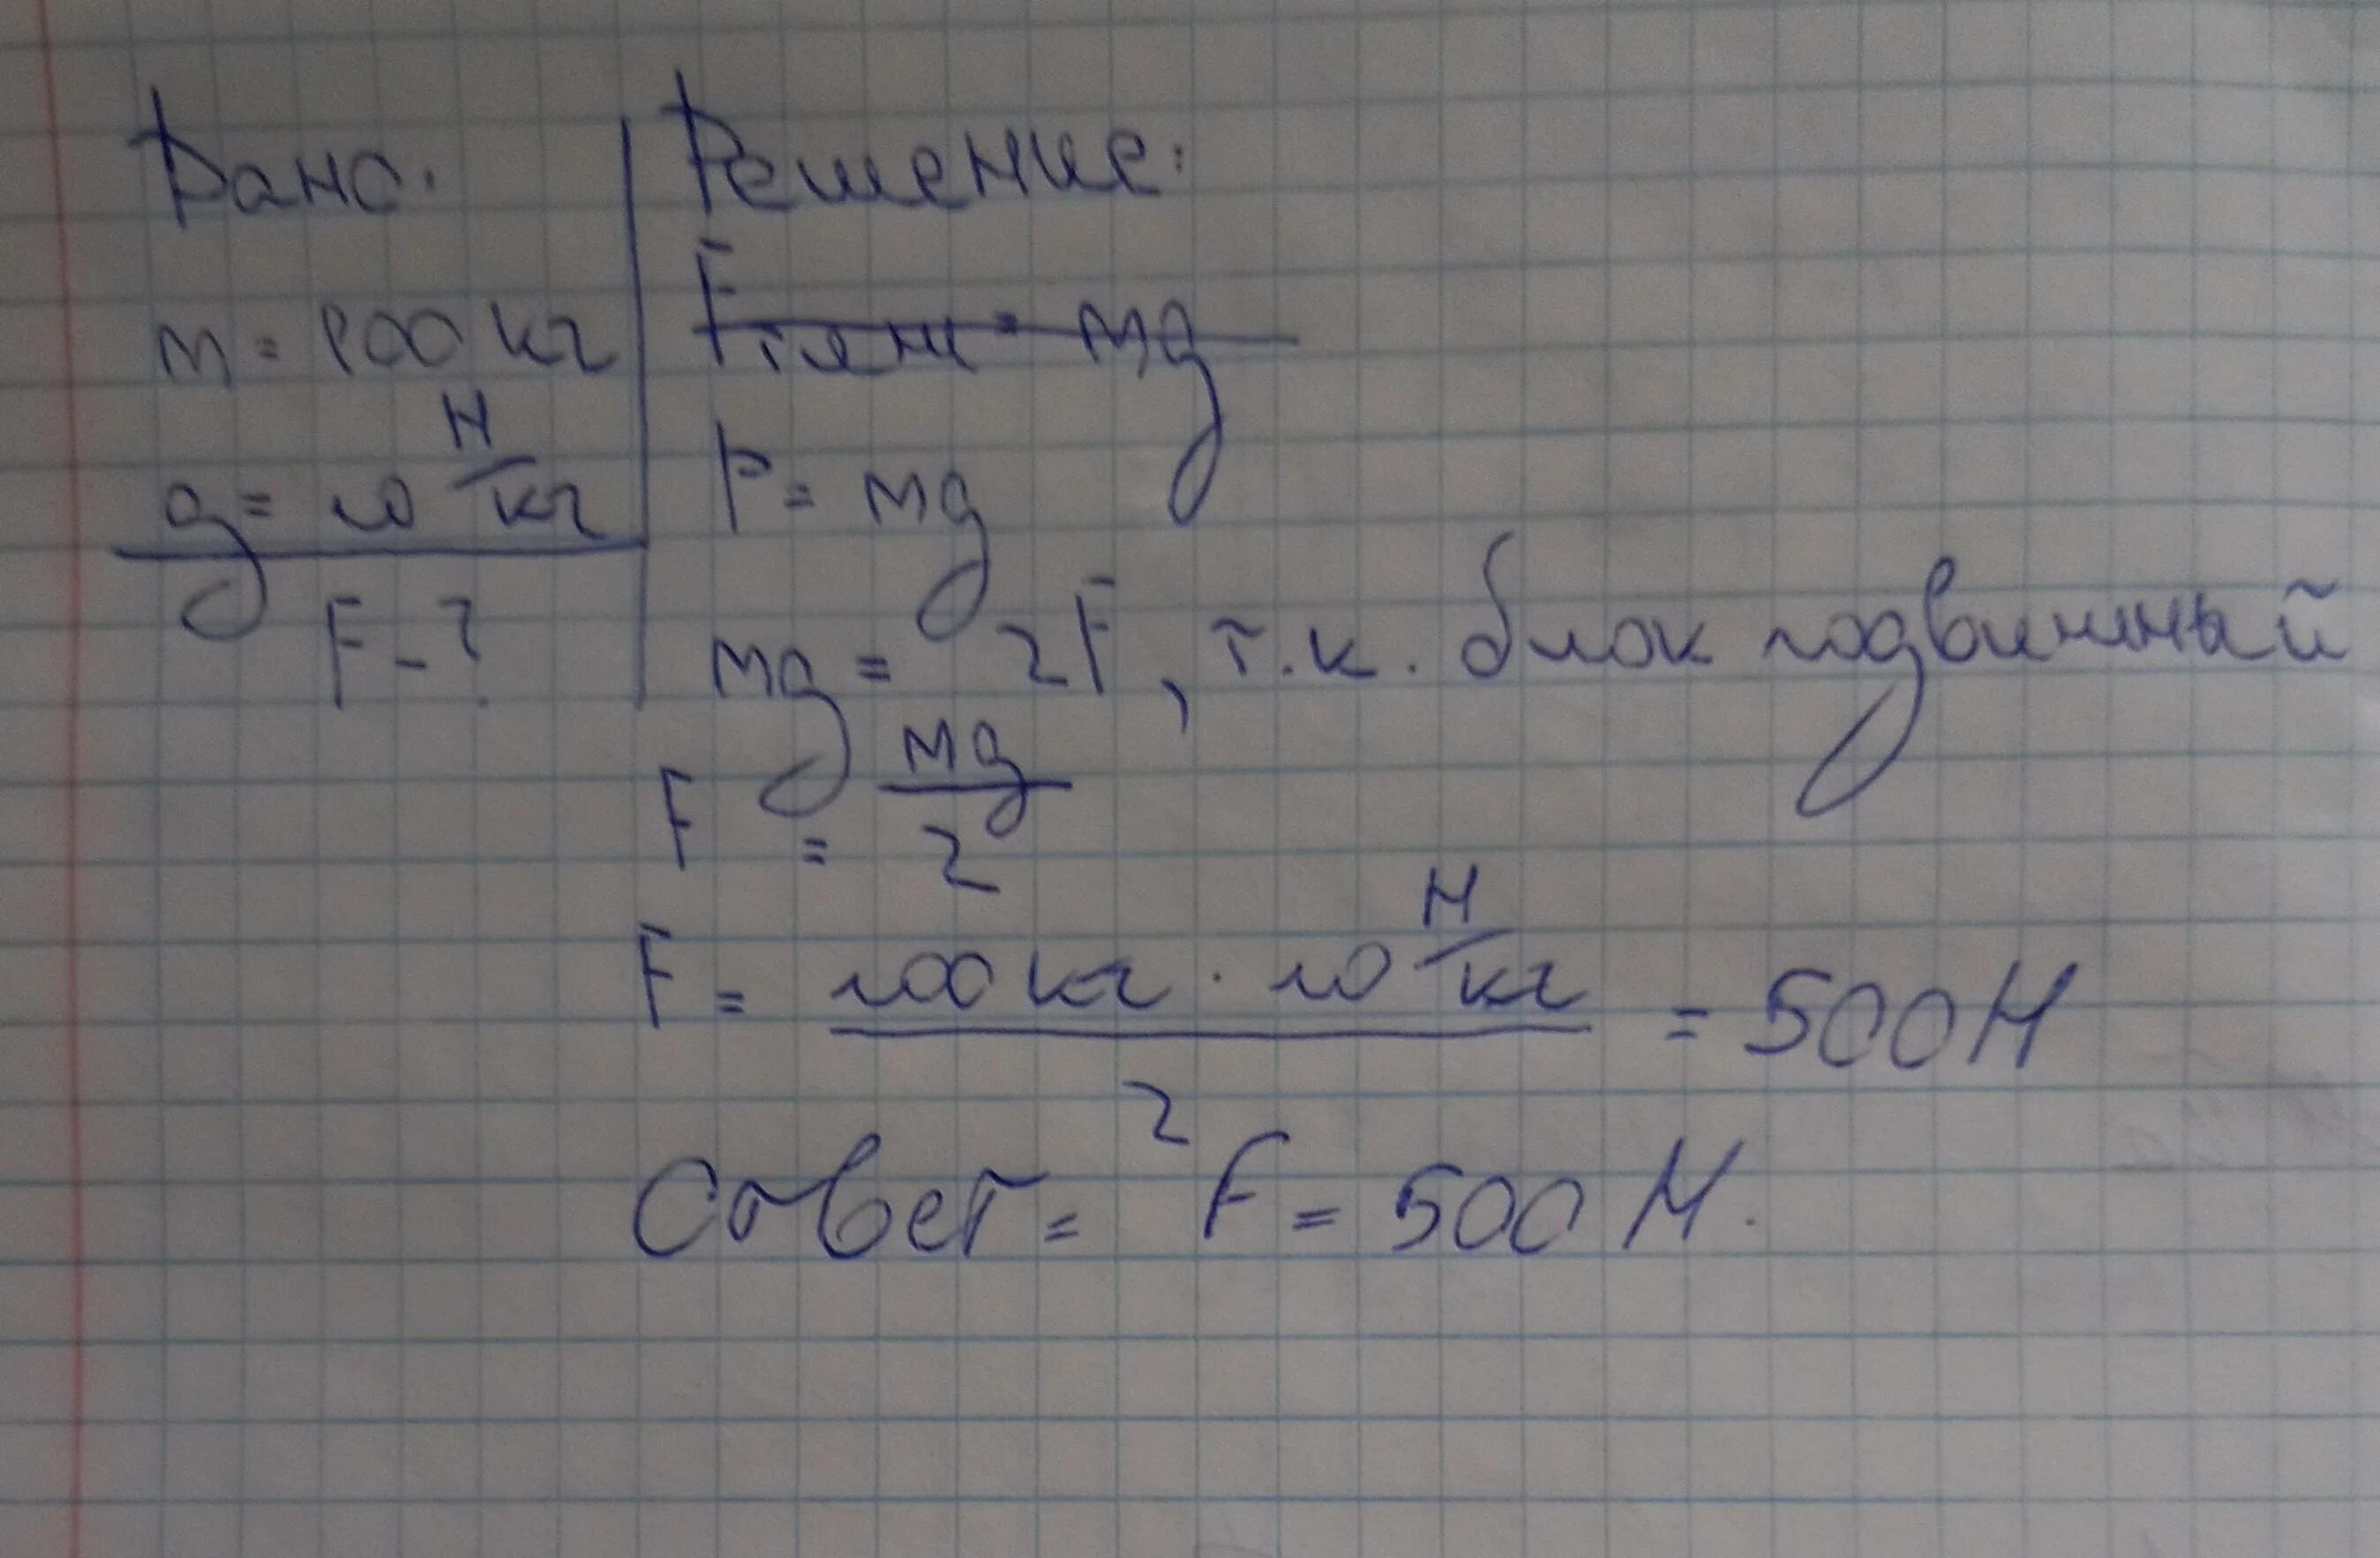 Дано:
m = 100 кг
g = 10 Н/кг
F - ?
Решение:
Fтяж = mg
P = mg
mg = 2F, т.к. блок подвижный
F = mg/2
F = 100 кг · 10 Н/кг / 2 = 500 Н
Ответ = F = 500 Н.